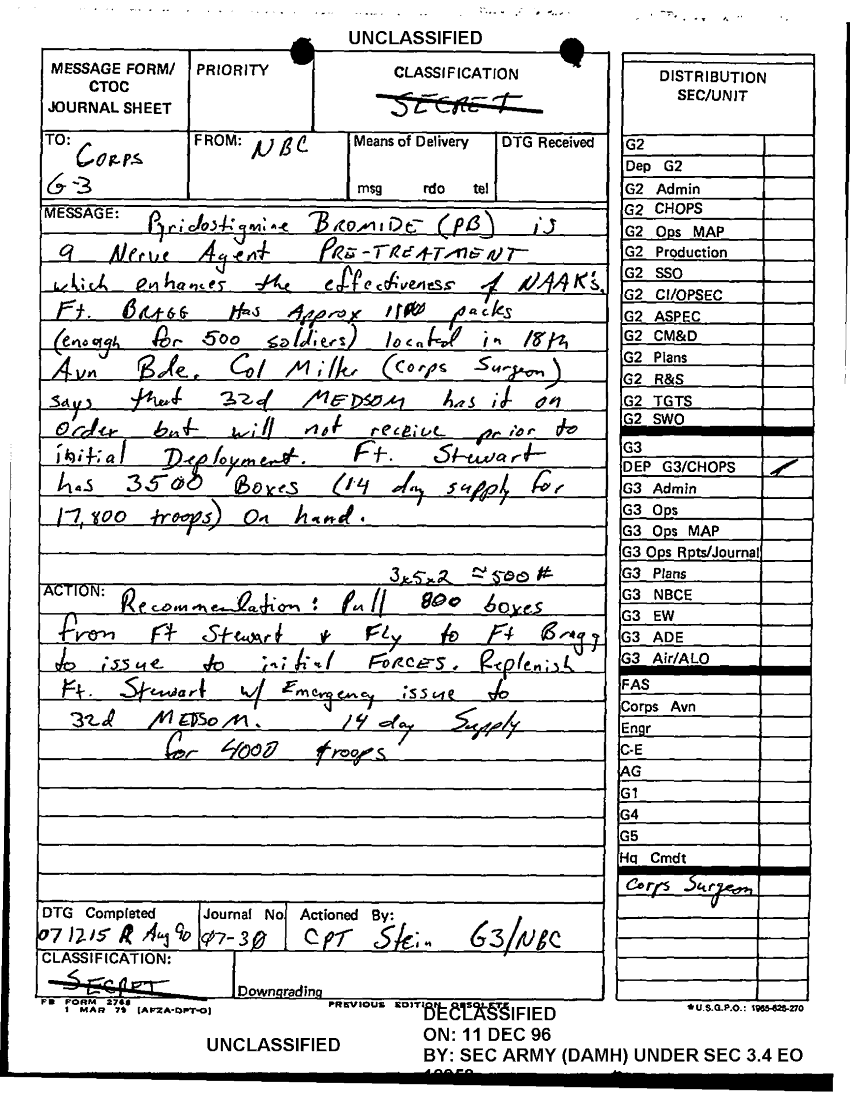 UNCLASSIFIED
MESSAGE FORM/
CTOC
JOURNAL SHEET
PRIORITY
CLASSIFICATION
SECRET
TO: CORPS
G-3
FROM: NBC
Means of Delivery
msg rdo tel
DTG Received
MESSAGE: Pyridostigmine BROMIDE (PB) is
a Nerve Agent PRE-TREATMENT
which enhances the effectiveness of NAAK's.
Ft. BRAGG Has Approx packs
(enough for 500 soldiers) located in 18th
Avn Bde. Col Miller (Corps Surgeon)
says that 32d MEDSOM has it on
order but will not receive prior to
initial Deployment. Ft. Stewart
has 3500 Boxes (14 day supply for
17,800 troops) On hand.
3x5x2 ≈500 #
ACTION: Recommendation: Pull 800 boxes
from Ft Stewart & Fly to Ft Bragg
to issue to initial FORCES. Replenish
Ft. Stewart w/ Emergency issue to
32d MEDSOM. 14 day Supply
for 4000 troops
DTG Completed
071215 R Aug 90
Journal No
07-30
Actioned By:
CPT Stein G3/NBC
CLASSIFICATION:
SECRET
Downgrading
FB FORM 2768
1 MAR 79 (AFZA-DPT-O)
PREVIOUS EDITION OBSOLETE
DISTRIBUTION
SEC/UNIT
G2
Dep G2
G2 Admin
G2 CHOPS
G2 Ops MAP
G2 Production
G2 SSO
G2 CI/OPSEC
G2 ASPEC
G2 CM&D
G2 Plans
G2 R&S
G2 TGTS
G2 SWO
G3
DEP G3/CHOPS
G3 Admin
G3 Ops
G3 Ops MAP
G3 Ops Rpts/Journal
G3 Plans
G3 NBCE
G3 EW
G3 ADE
G3 Air/ALO
FAS
Corps Avn
Engr
C-E
AG
G1
G4
G5
Hq Cmdt
Corps Surgeon
*U.S.G.P.O.: 1985-628-270
UNCLASSIFIED
DECLASSIFIED
ON: 11 DEC 96
BY: SEC ARMY (DAMH) UNDER SEC 3.4 EO